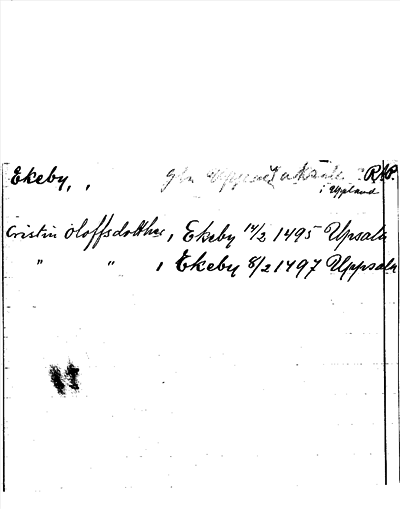 Ekeby, , R.A.P.
i Uppland
Cristin Oloffsdotther, Ekeby 14/2 1495 Upsala
" " , Ekeby 8/2 1497 Uppsala